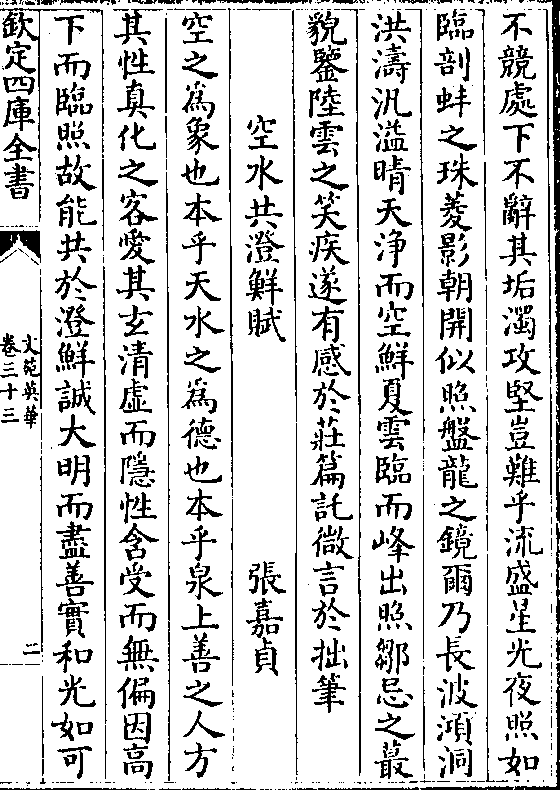 不競處下不辭其垢濁攻堅豈難乎流盛星光夜照如
臨剖蚌之珠菱影朝開似照盤龍之鏡爾乃長波澒洞
洪濤汎溢晴天浄而空鮮夏雲臨而峰出照鄒忌之蕞
貌鑒陸雲之笑疾遂有感於莊篇託微言於拙筆
空水共澄鮮賦 張嘉貞
空之為象也本乎天水之為德也本乎泉上善之人方
其性真化之客愛其玄清虛而隱性含受而無偏因高
下而臨照故能共於澄鮮誠大明而盡善實和光如可
欽定四庫全書
文苑英華
卷三十三
二